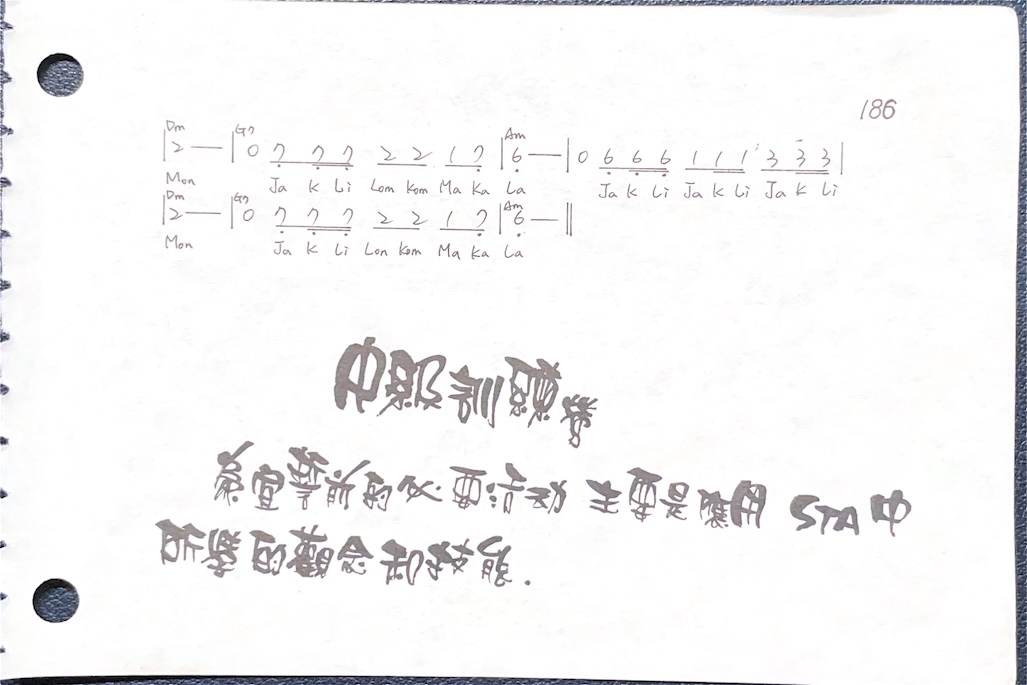 186
Dm G7 Am
|2 — |0 7 7 7 2 2 1 7 |6 — |0 6 6 6 1 1 1 3 3 3|
Mon Ja K Li Lom Kom Ma Ka La Ja K Li Ja K Li Ja K Li
Dm G7 Am
|2 — |0 7 7 7 2 2 1 7 |6 — ‖
Mon Ja K Li Lon Kom Ma Ka La
中級訓練營
為宣誓前的必要活動 主要是應用 STA中
所學的觀念和技能.